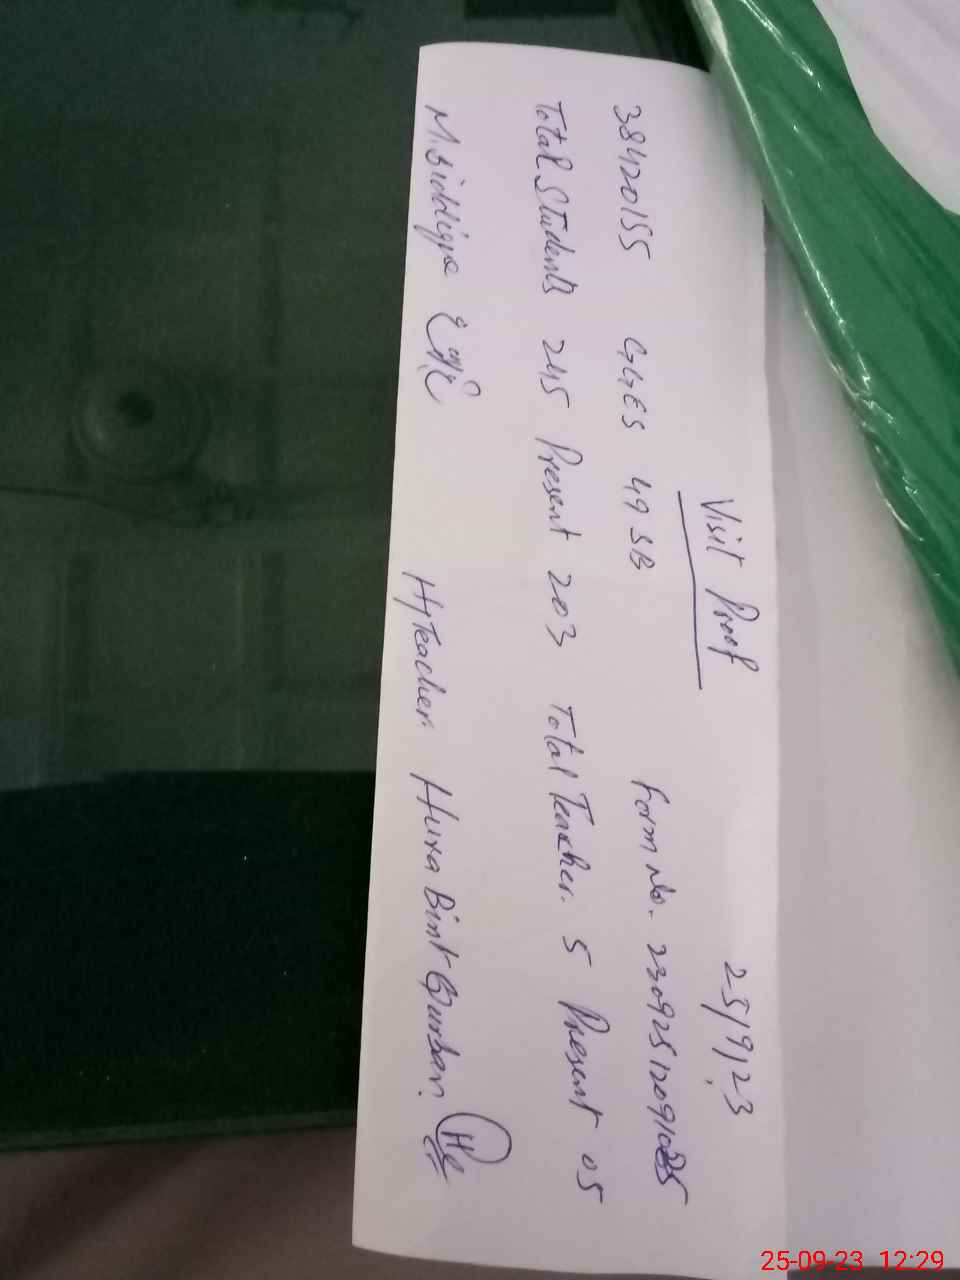 Visit Proof 25/9/23
38420155 GGES 49 SB Form No. 230925120910
Total Students 245 Present 203 Total Teacher. 5 Present 05
M. Siddique H/Teacher. Hura Bint Qurban.
25-09-23 12:29